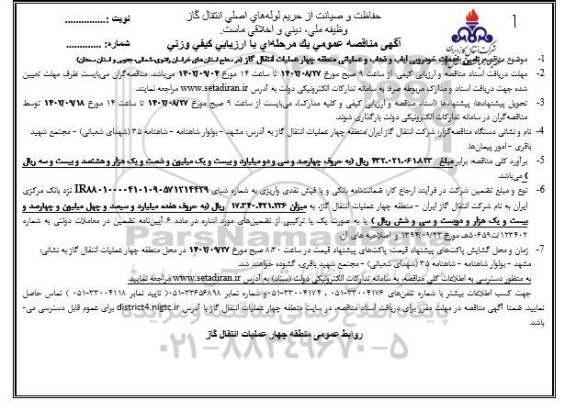 ۱
حفاظت و صیانت از حریم لوله‌های اصلی انتقال گاز
وظیفه ملی، دینی و اخلاقی ماست.
نوبت :
آگهی مناقصه عمومی یك مرحله‌ای با ارزیابی کیفی وزنی
شماره:
شرکت انتقال گاز ایران
1- موضوع مناقصه: تأمین خدمات خودرویی ایاب و ذهاب و عملیاتی منطقه چهار عملیات انتقال گاز (در سطح استان های خراسان رضوی، شمالی، جنوبی و استان سمنان)
2- مهلت دریافت اسناد مناقصه و ارزیابی کیفی: از ساعت ۹ صبح مورخ
می‌باشد. مناقصه‌گران می‌بایست ظرف مهلت تعیین
شده جهت دریافت اسناد و مدارک مربوطه صرفا به سامانه تدارکات الکترونیکی دولت به آدرس www.setadiran.ir مراجعه نمایند.
3- تحویل پیشنهادها: پیشنهادها (اسناد مناقصه و ارزیابی کیفی و کلیه مدارک)، می‌بایست از ساعت ۹ صبح مورخ
توسط
مناقصه‌گران در سامانه تدارکات الکترونیکی دولت بارگذاری شوند.
4- نام و نشانی دستگاه مناقصه‌گزار: شرکت انتقال گاز ایران/منطقه چهار عملیات انتقال گاز به آدرس: مشهد - بولوار شاهنامه - شاهنامه ۳۵ (شهدای شعبانی) - مجتمع شهید
باقری - امور پیمان‌ها.
5- برآورد کلی مناقصه: برابر مبلغ
ریال (به حروف چهارصد و سی و دو میلیارد و بیست و یک میلیون و شصت و یک هزار و هشتصد و بیست و سه ریال
) می‌باشد.
6- نوع و مبلغ تضمین شرکت در فرآیند ارجاع کار: ضمانتنامه بانکی و یا فیش نقدی واریزی به شماره شبای
نزد بانک مرکزی
ایران به نام شرکت انتقال گاز ایران - منطقه چهار عملیات انتقال گاز، به میزان
ریال (به حروف هفده میلیارد و سیصد و چهل میلیون و چهارصد و
بیست و یک هزار و دویست و سی و شش ریال ) یا به صورت یک یا ترکیبی از تضمین‌های مورد اشاره در ماده ۶ آیین‌نامه تضمین در معاملات دولتی به شماره
۱۲۳۴۰۲/ت۵۰۶۵۹هـ مورخ ۱۳۹۴/۰۹/۲۲ و اصلاحیه های آن.
7- زمان و محل گشایش پاکت‌های پیشنهاد قیمت: پاکت‌های پیشنهاد قیمت در ساعت ۸:۳۰ صبح مورخ
در محل منطقه چهار عملیات انتقال گاز به نشانی:
مشهد - بولوار شاهنامه - شاهنامه ۳۵ (شهدای شعبانی) - مجتمع شهید باقری، گشوده خواهند شد.
به منظور دسترسی به اطلاعات کلی مناقصه، به سامانه تدارکات الکترونیکی دولت (ستاد) به آدرس www.setadiran.ir مراجعه نمایید
جهت کسب اطلاعات بیشتر با شماره تلفن‌های
۰۵۱-۳۳۰۰۴۱۷۴ و شماره نمابر
(تایید نمابر ۰۵۱-۳۳۰۰۴۱۱۸ ) تماس حاصل
نمایید. ضمنا آگهی مناقصه در مهلت مقرر برای دریافت اسناد مناقصه، در سایت منطقه چهار عملیات انتقال گاز با آدرس district4.nigtc.ir برای عموم قابل دسترسی می-
باشد.
روابط عمومی منطقه چهار عملیات انتقال گاز
۰۲۱-۸۸۳۴۹۶۷۰-۵